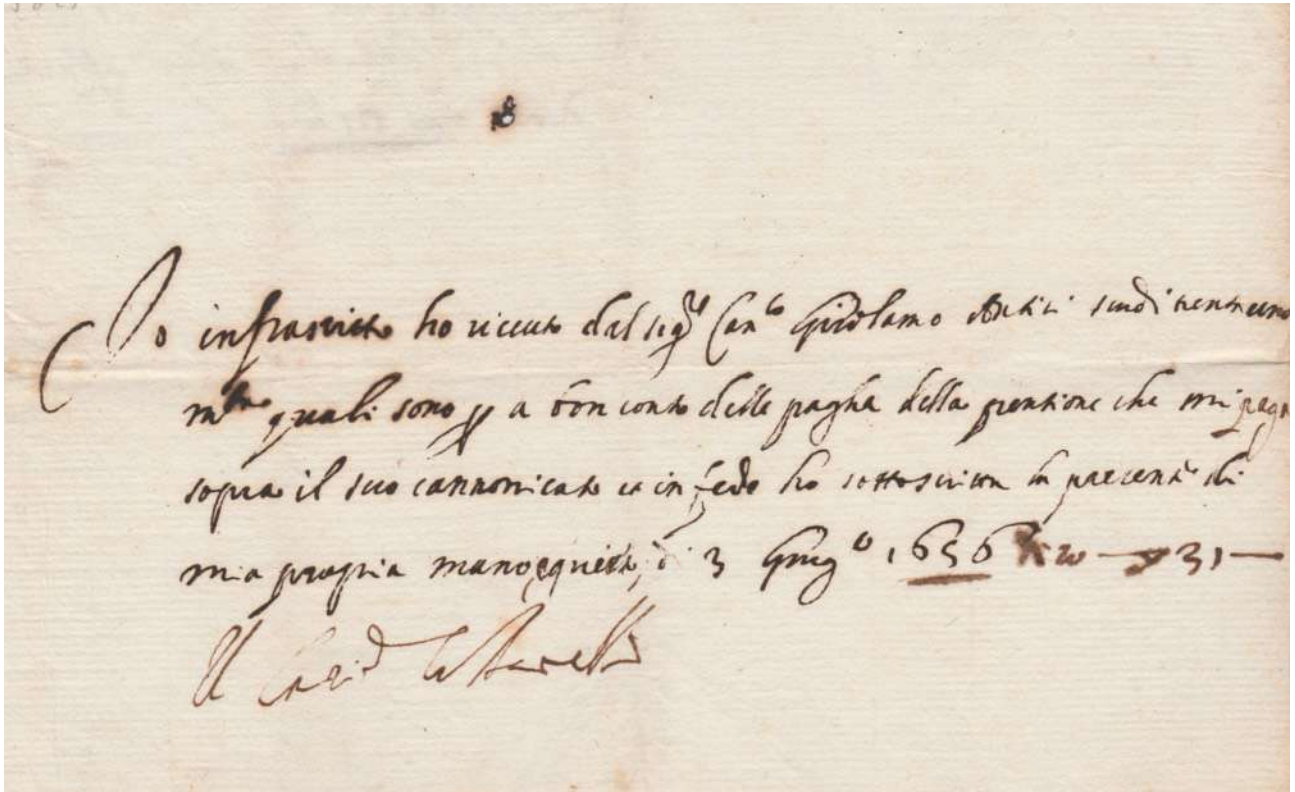 Io infrascritto ho riceuto dal sigr Canco Girolamo Antici scudi trentuno
mta quali sono p a bon conto delle pagha della pensione che mi paga
sopra il suo cannonicato et in fede ho sottoscritta la presente di
mia propria mano, questo di 3 Giugo 1656 31
Il Card